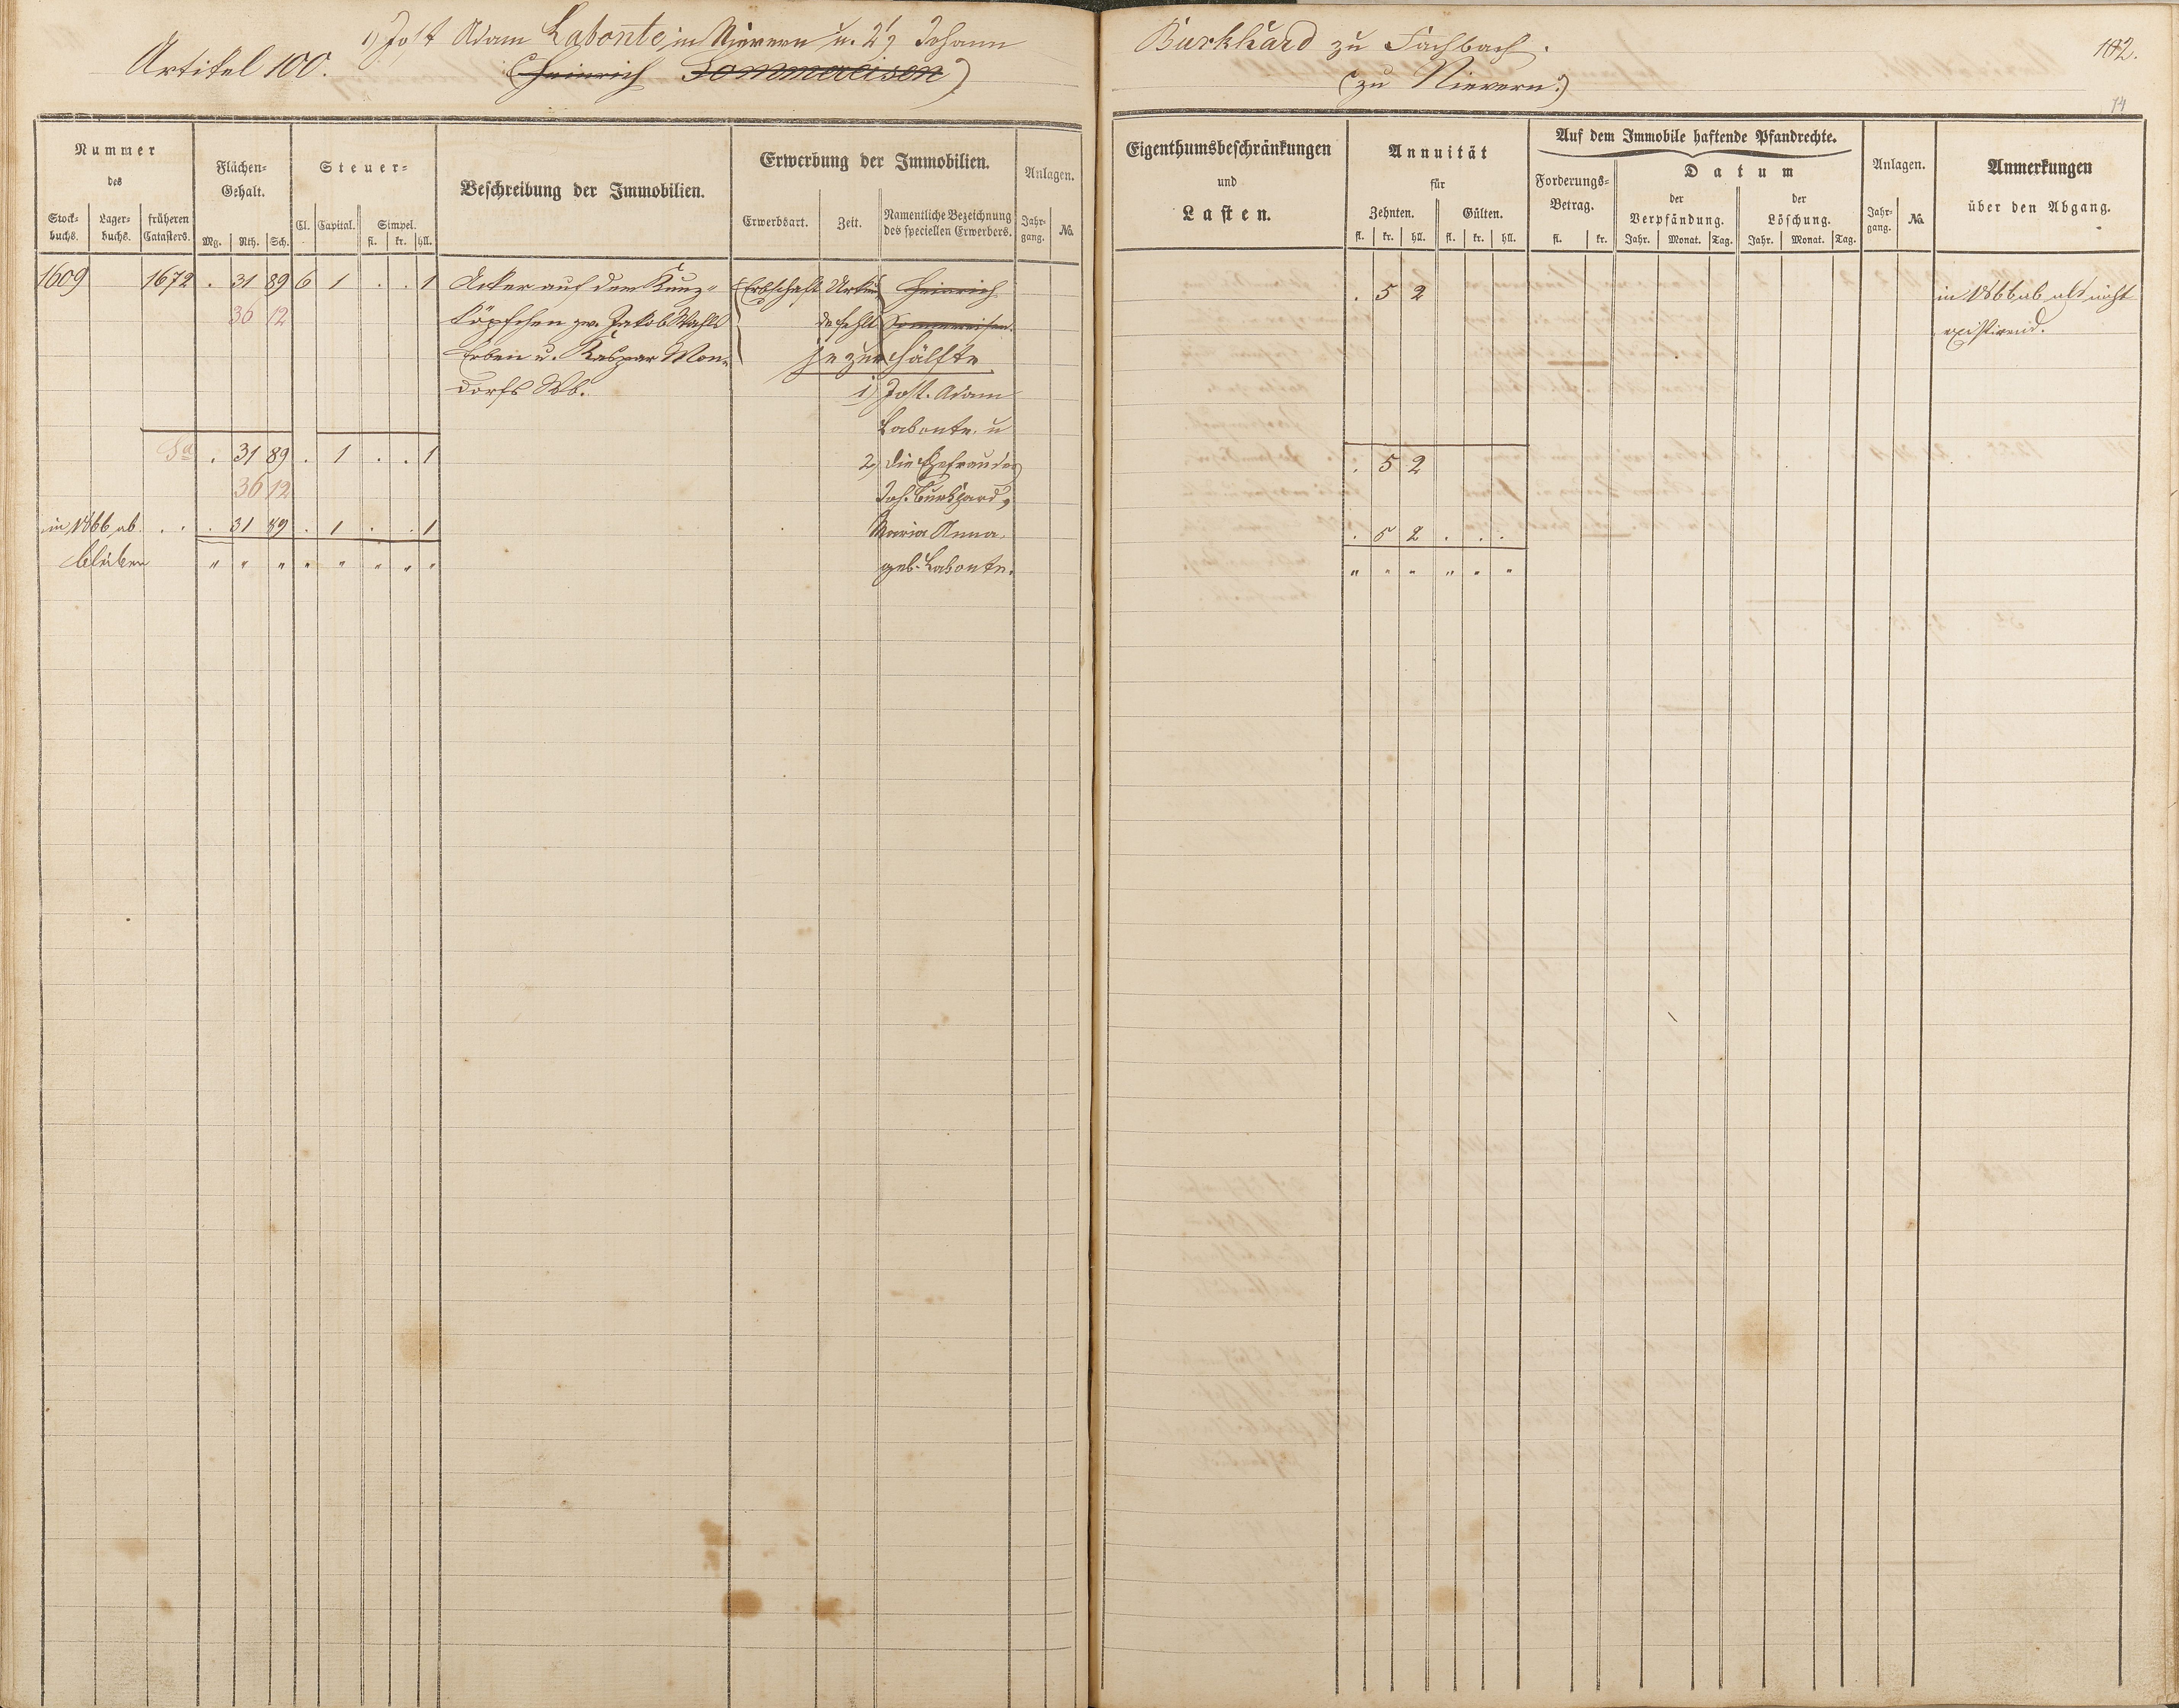 1) Jost Adam Labonte in Nievern u. 2) Johann Burkhard zu Fachbach.
Artikel 100. (Heinrich Sommereisen) (zu Nievern.)
102.
14
Nummer
des
Stock-
buchs.
Lager-
buchs.
früheren
Catasters.
Flächen-
Gehalt.
Mg. Rth. Sch.
Steuer-
Cl. Capital. Simpel.
fl. kr. hll.
Beschreibung der Immobilien.
Erwerbung der Immobilien.
Erwerbsart. Zeit.
Namentliche Bezeichnung
des speciellen Erwerbers.
Anlagen.
Jahr-
gang.
No.
Eigenthumsbeschränkungen
und
Lasten.
Annuität
für
Zehnten. Gülten.
fl. kr. hll. fl. kr. hll.
Auf dem Immobile haftende Pfandrechte.
Forderungs-
Betrag.
fl. kr.
Datum
der
Verpfändung.
Jahr. Monat. Tag.
der
Löschung.
Jahr. Monat. Tag.
Anlagen.
Jahr-
gang.
No.
Anmerkungen
über den Abgang.
1609 1672 . 31 89 6 1 . . 1 Acker auf dem Kunz- Erbschaft Urkun Heinrich . 5 2 in 1866 ab als nicht
36 12 köpfchen zw. Jakob Wahls de fehlt Sommereisen. existirend.
Erben u. Kaspar Mon- je zur Hälfte
dorfs Wb. 1) Jost. Adam
Labonte. u
Sa . 31 89 . 1 . . 1 2) die Ehefrau des . 5 2
36 12 Joh. Burkhard,
in 1866 ab. . . . 31 89 . 1 . . 1 Maria Anna . 5 2 . . .
bleiben " " " " " " " " geb. Labonte. " " " " " "